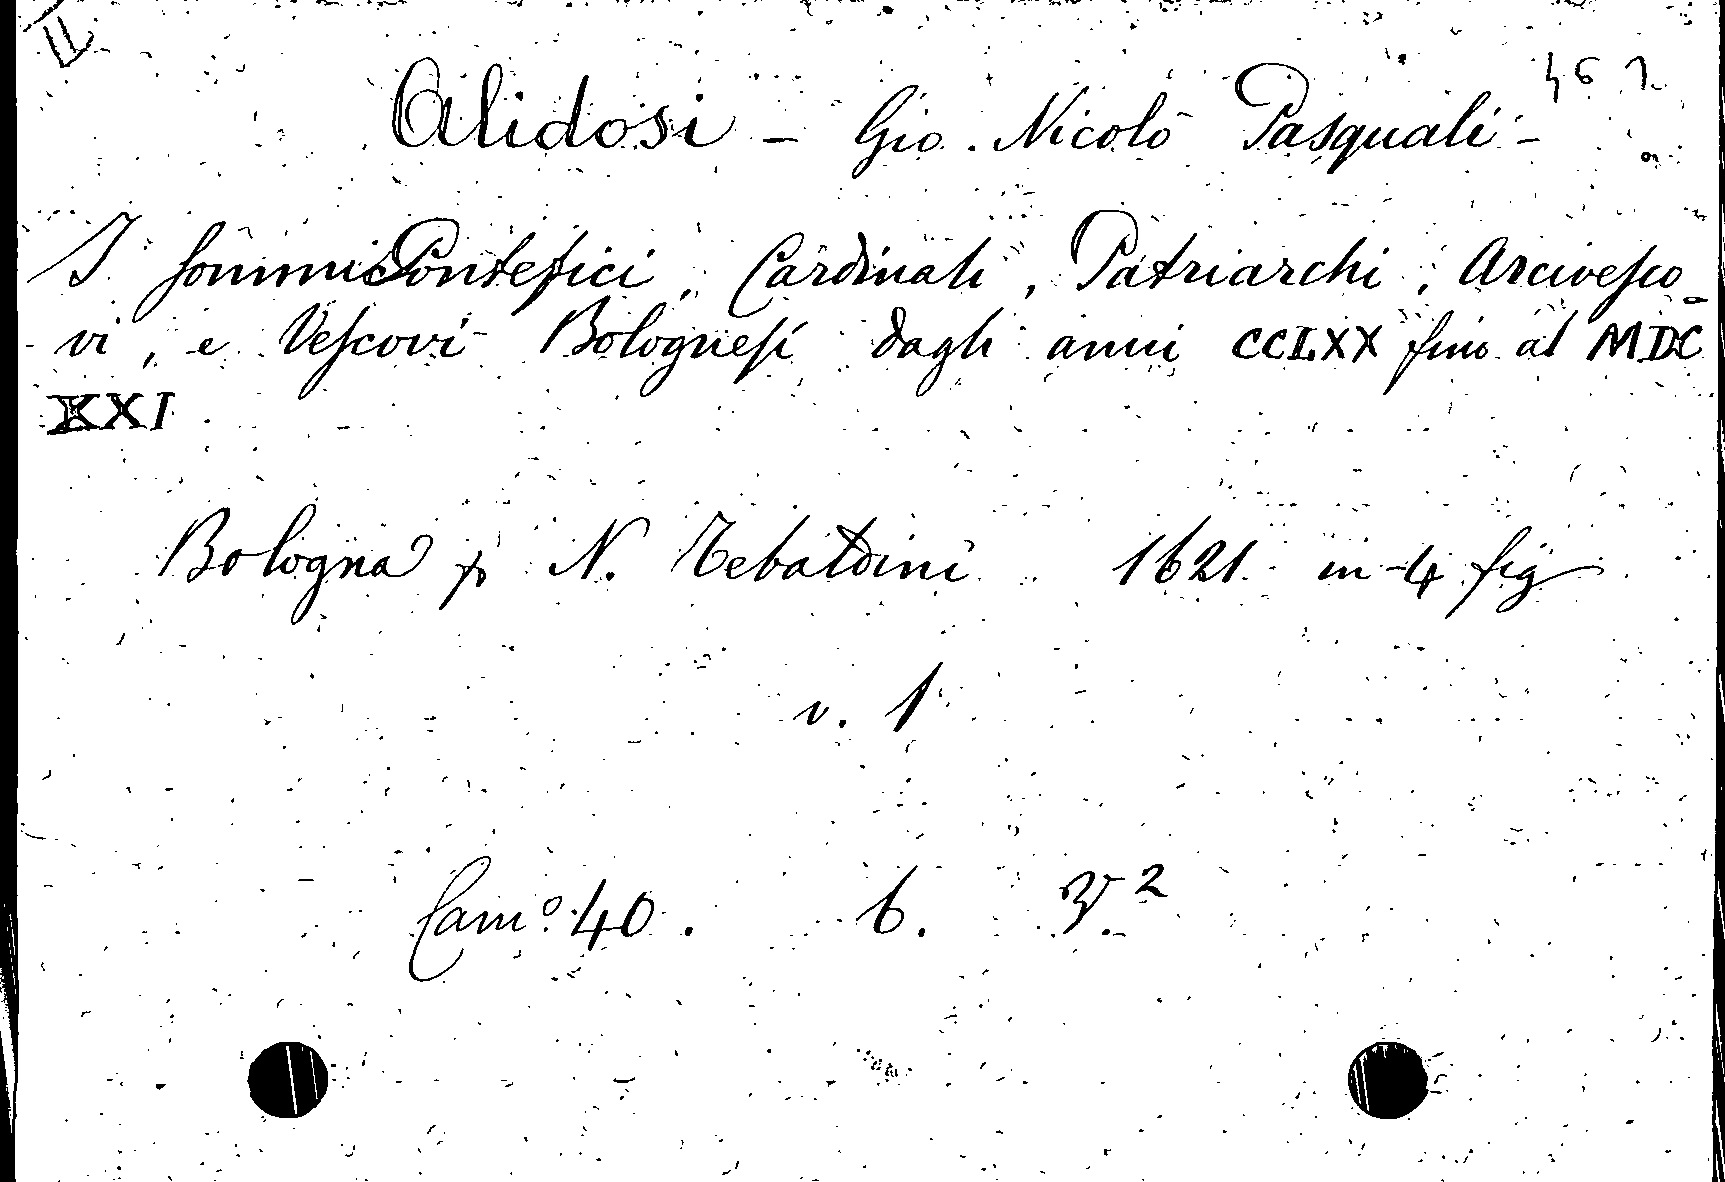 Alidosi - Gio. Nicolò Pasquali -
I sommi Pontefici, Cardinali, Patriarchi, Arcivesco-
vi, e Vescovi Bolognesi dagli anni CCLXX fino al MDC
XXI
Bologna p N. Tebaldini 1621 in-4 fig
v. 1
Cam° 40. b. V. 2